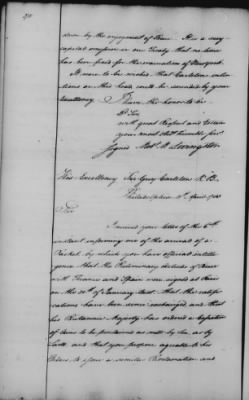 down by the enjoyment of Peace. It is a very
capital omission in our Treaty that no time
has been fixed for the evacuation of Newyork.
It were to be wished that Carletons inten
tions on this head could be sounded by your
Excellency. I have the honor to be
Dr Sir
with great Respect and Esteem
your most obt humble servt
Signed Robt R Livingston
His Excellency Sir Guy Carleton K. B.
Philadelphia 11th April 1783
Sir
I received your letter of the 6th
instant informing me of the arrival of a
Packet by which you have official intelli
gence that the Preliminary Articles of Peace
with France and Spain were signed at Paris
on the 20th of January last that the ratifi
cations have been since exchanged and that
his Britannic Majesty has ordered a Cessation
of Arms to be proclaimed as well by Sea as by
Land and that you propose agreeable to his
Orders to issue a similar Proclamation and